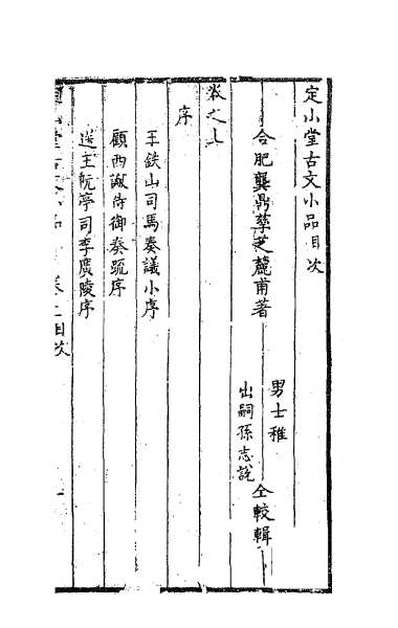 定山堂古文小品目次
合肥龔鼎孳芝麓甫著
男士稚
出嗣孫志說
仝較輯
卷之上
序
王鉄山司馬奏議小序
顧西巘侍御奏疏序
送王阮亭司李廣陵序
堂古文小品
卷上目次